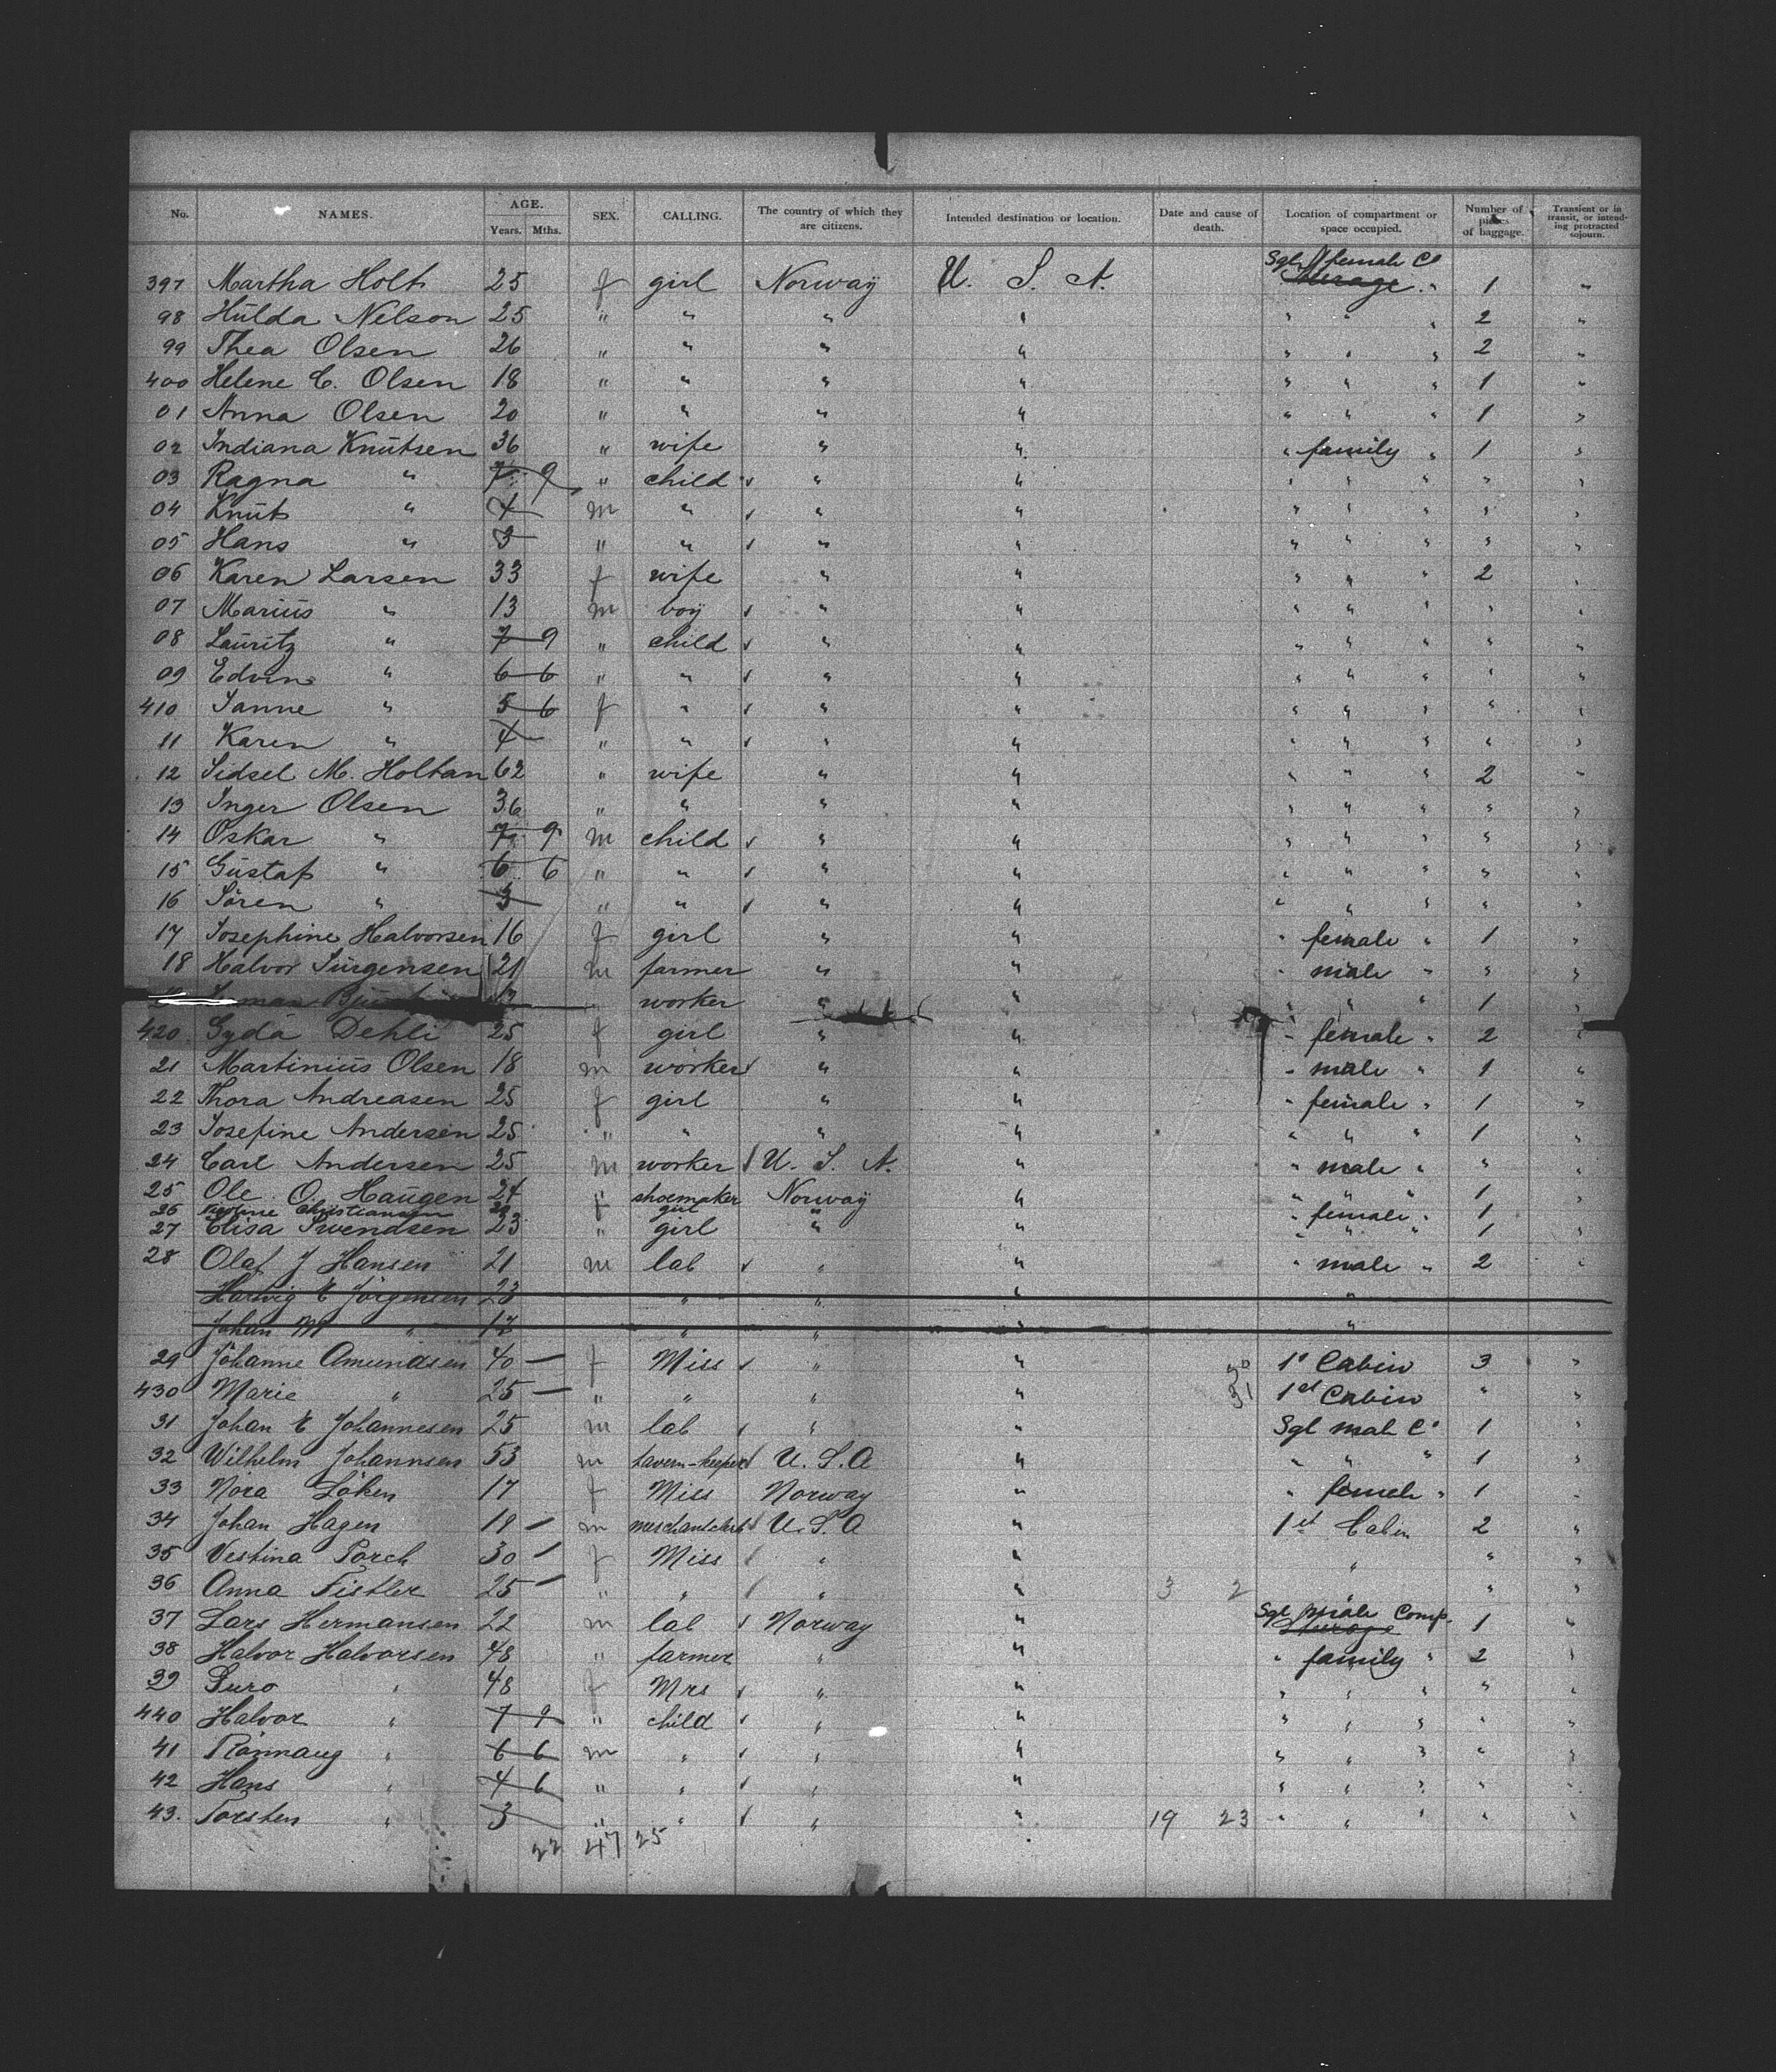 No. NAMES. AGE. Years. Mths. SEX. CALLING. The country of which they are citizens. Intended destination or location. Date and cause of death. Location of compartment or space occupied. Number of pieces of baggage. Transient or in transit, or intending protracted sojourn.
397 Martha Holt 25 f girl Norway U. S. A. Sgl female Ct Sterage " 1 "
98 Hulda Nelson 25 " " " " " " " 2 "
99 Thea Olsen 26 " " " " " " " 2 "
400 Helene C. Olsen 18 " " " " " " " 1 "
01 Anna Olsen 20 " " " " " " " 1 "
02 Indiana Knutsen 36 " wife " " " family " 1 "
03 Ragna " 7 9 " child " " " " " " "
04 Knut " 4 m " " " " " " " "
05 Hans " 3 " " " " " " " " "
06 Karen Larsen 33 f wife " " " " " 2 "
07 Marius " 13 m boy " " " " " " "
08 Lauritz " 7 9 " child " " " " " " "
09 Edvin " 6 6 " " " " " " " " "
410 Janne " 5 6 f " " " " " " " "
11 Karen " 4 " " " " " " " " "
12 Sidsel M. Holtan 62 " wife " " " " " 2 "
13 Inger Olsen 36 " " " " " " " " "
14 Oskar " 7 9 m child " " " " " " "
15 Gustaf " 6 6 " " " " " " " " "
16 Sören " 3 " " " " " " " " "
17 Josephine Halvorsen 16 f girl " " " female " 1 "
18 Halvor Jürgensen 21 m farmer " " " male " " "
worker " " " " " 1 "
420 Gyda Dehli 25 f girl " " " female " 2 "
21 Martinius Olsen 18 m worker " " " male " 1 "
22 Thora Andreasen 25 f girl " " " female " 1 "
23 Josefine Andersen 25 " " " " " " " 1 "
24 Carl Andersen 25 m worker U. S. A. " " male " " "
25 Ole O. Haugen 24 shoemaker Norway " " " " 1 "
26 Christiansen f girl " " " female " 1
27 Elisa Swendsen 23 " girl " " " " " 1 "
28 Olaf J Hansen 21 m lab " " " male " 2 "
Harwig E Jörgensen 23 " " " "
Johan M " 17 " " " "
29 Johanne Amundsen 40 — f Miss " " 30 1st Cabin 3 "
430 Marie " 25 — " " " " 31 1st Cabin " "
31 Johan E Johannesen 25 m lab " " Sgl male Ct 1 "
32 Wilhelm Johannsen 53 m tavern-keeper U. S. A " " " " 1 "
33 Nora Löken 17 f Miss Norway " " female " 1 "
34 Johan Hagen 19 — m U. S. A " 1st Cabin 2 "
35 Vestina Porch 30 — f Miss " " " " "
36 Anna Fistler 25 — " " " " 3 2 " " "
37 Lars Hermansen 22 m lab Norway " Sgl male Comp. Sterage 1 "
38 Halvor Halvorsen 48 " farmer " " " family " 2 "
39 Guro " 48 f Mrs " " " " " " "
440 Halvor " 7 9 " child " " " " " " "
41 Rönnaug " 6 6 m " " " " " " " "
42 Hans " 4 6 " " " " " " " " "
43. Torsten " 3 " " " " 19 23 " " " " "
22 47 25